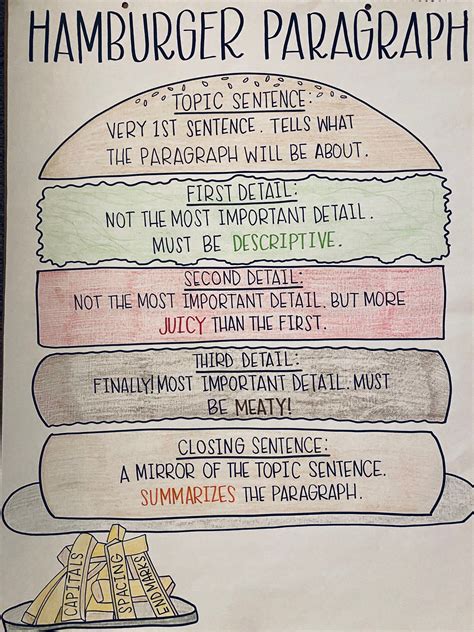 HAMBURGER PARAGRAPH
TOPIC SENTENCE:
VERY 1ST SENTENCE. TELLS WHAT
THE PARAGRAPH WILL BE ABOUT.
FIRST DETAIL:
NOT THE MOST IMPORTANT DETAIL.
MUST BE DESCRIPTIVE.
SECOND DETAIL:
NOT THE MOST IMPORTANT DETAIL, BUT MORE
JUICY THAN THE FIRST.
THIRD DETAIL:
FINALLY! MOST IMPORTANT DETAIL. MUST
BE MEATY!
CLOSING SENTENCE:
A MIRROR OF THE TOPIC SENTENCE.
SUMMARIZES THE PARAGRAPH.
CAPITALS
SPACING
ENDMARKS